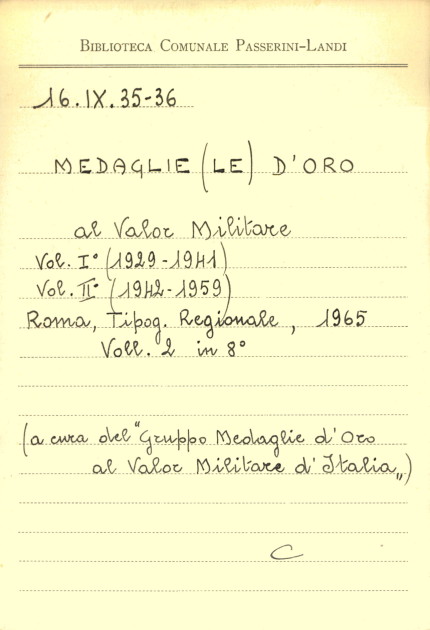 BIBLIOTECA COMUNALE PASSERINI-LANDI
16.IX.35-36
MEDAGLIE (LE) D'ORO
al Valor Militare
Vol. I° (1929-1941)
Vol. II° (1942-1959)
Roma, Tipog. Regionale, 1965
Voll. 2 in 8°
(a cura del "Gruppo Medaglie d'Oro
al Valor Militare d'Italia„)
C